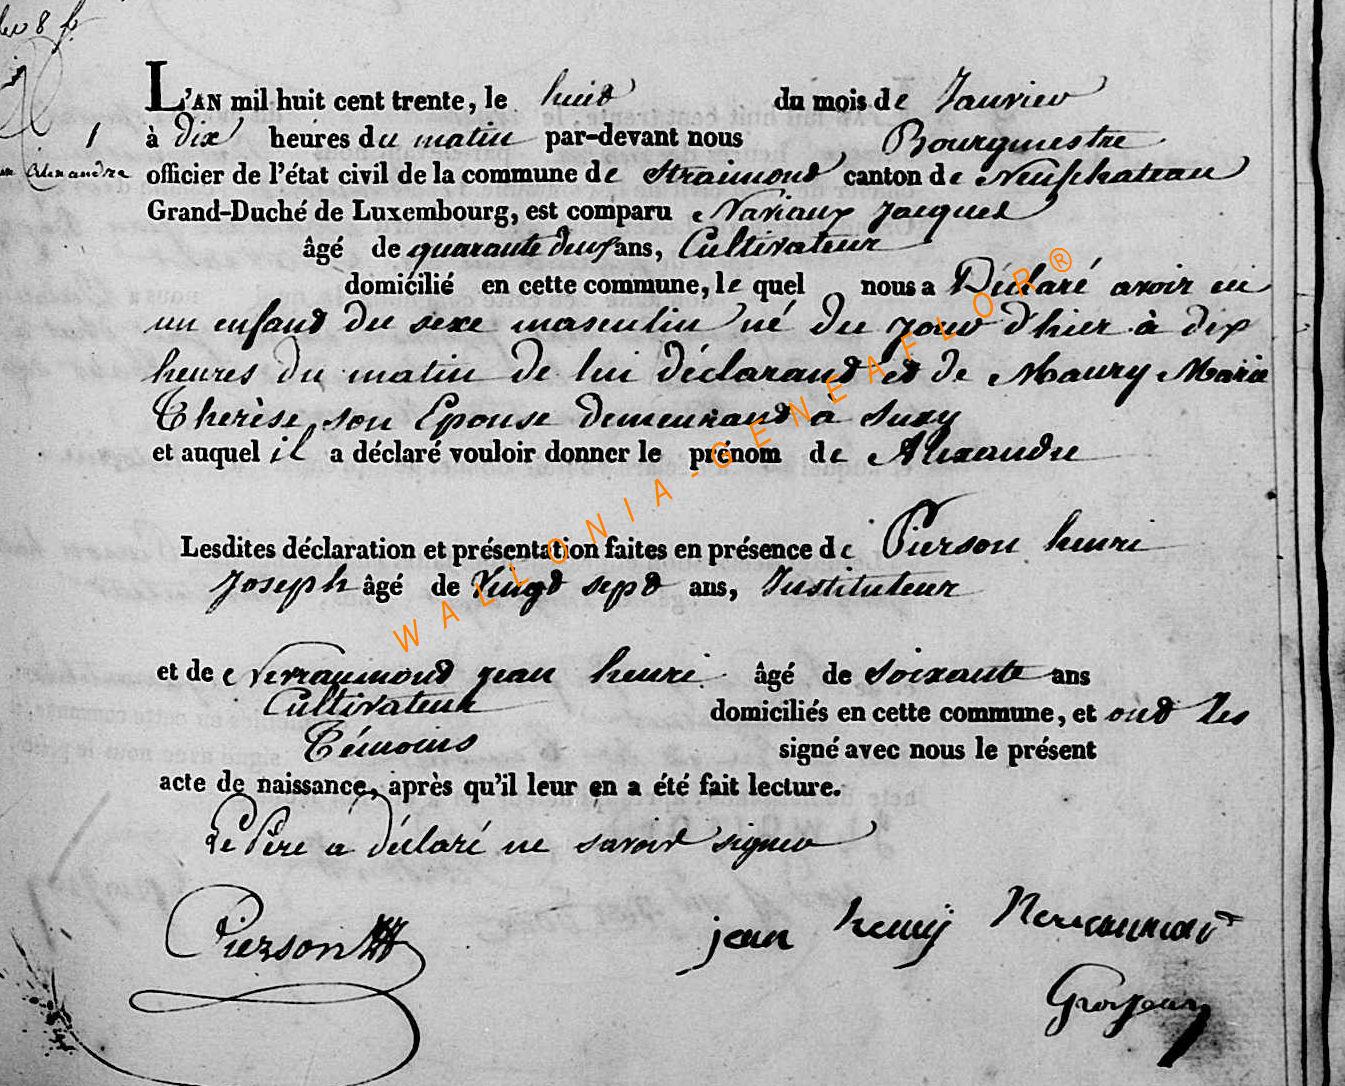 8 f
1
Alexandre
L'AN mil huit cent trente, le huit du mois de Janvier
à Dix heures du matin par-devant nous Bourgmestre
officier de l'état civil de la commune de Straimont canton de Neufchateau
Grand-Duché de Luxembourg, est comparu Naviaux Jacques
âgé de quarante deux ans, Cultivateur
domicilié en cette commune, le quel nous a Déclaré avoir eu
un enfant du sexe masculin né du jour d'hier à dix
heures du matin de lui déclarant et de Maury Marie
Therèse son Epouse demeurant à Suxy
et auquel il a déclaré vouloir donner le prénom de Alexandre
Lesdites déclaration et présentation faites en présence de Pierson henri
Joseph âgé de Vingt sept ans, Instituteur
et de Nerraumont jean henri âgé de Soixante ans
Cultivateur domiciliés en cette commune, et ont les
Témoins signé avec nous le présent
acte de naissance, après qu'il leur en a été fait lecture.
Le Père a déclaré ne savoir signer
Pierson jean henrij
Grosjean
WALLONIA-GENEAFLOR®